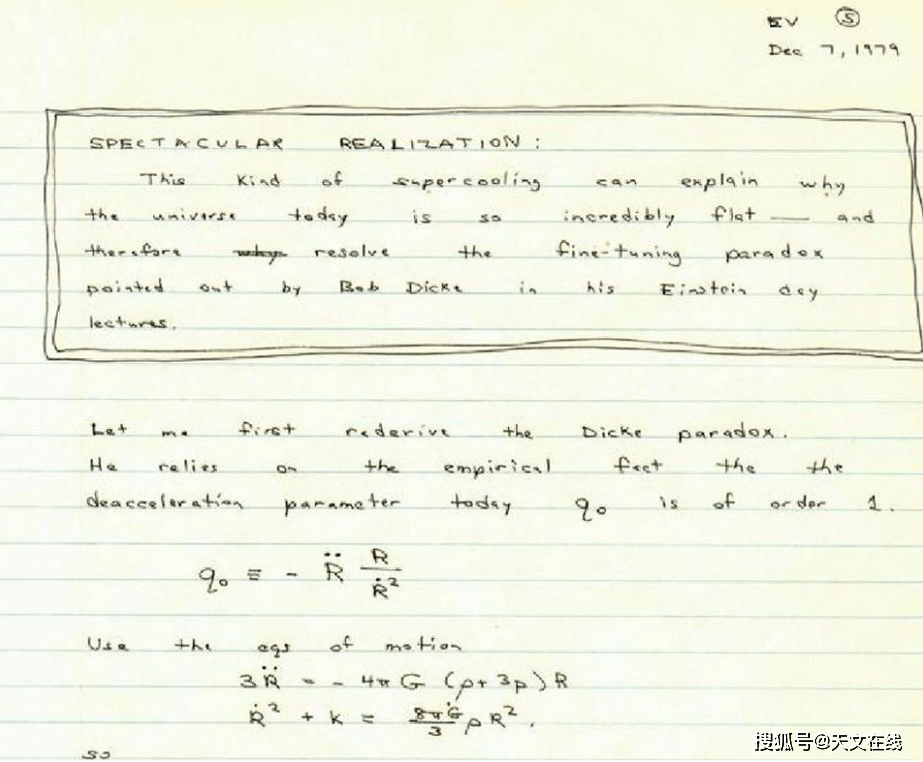 EV ⑤
Dec 7, 1979
SPECTACULAR REALIZATION:
This kind of supercooling can explain why
the universe today is so incredibly flat — and
therefore resolve the fine-tuning paradox
pointed out by Bob Dicke in his Einstein day
lectures.
Let me first rederive the Dicke paradox.
He relies on the empirical fact the the
deacceleration parameter today q₀ is of order 1.
q₀ ≡ - R̈ R/Ṙ²
Use the eqs of motion
3R̈ = - 4π G (ρ + 3p) R
Ṙ² + k = 8πG/3 ρ R².
so
搜狐号@天文在线